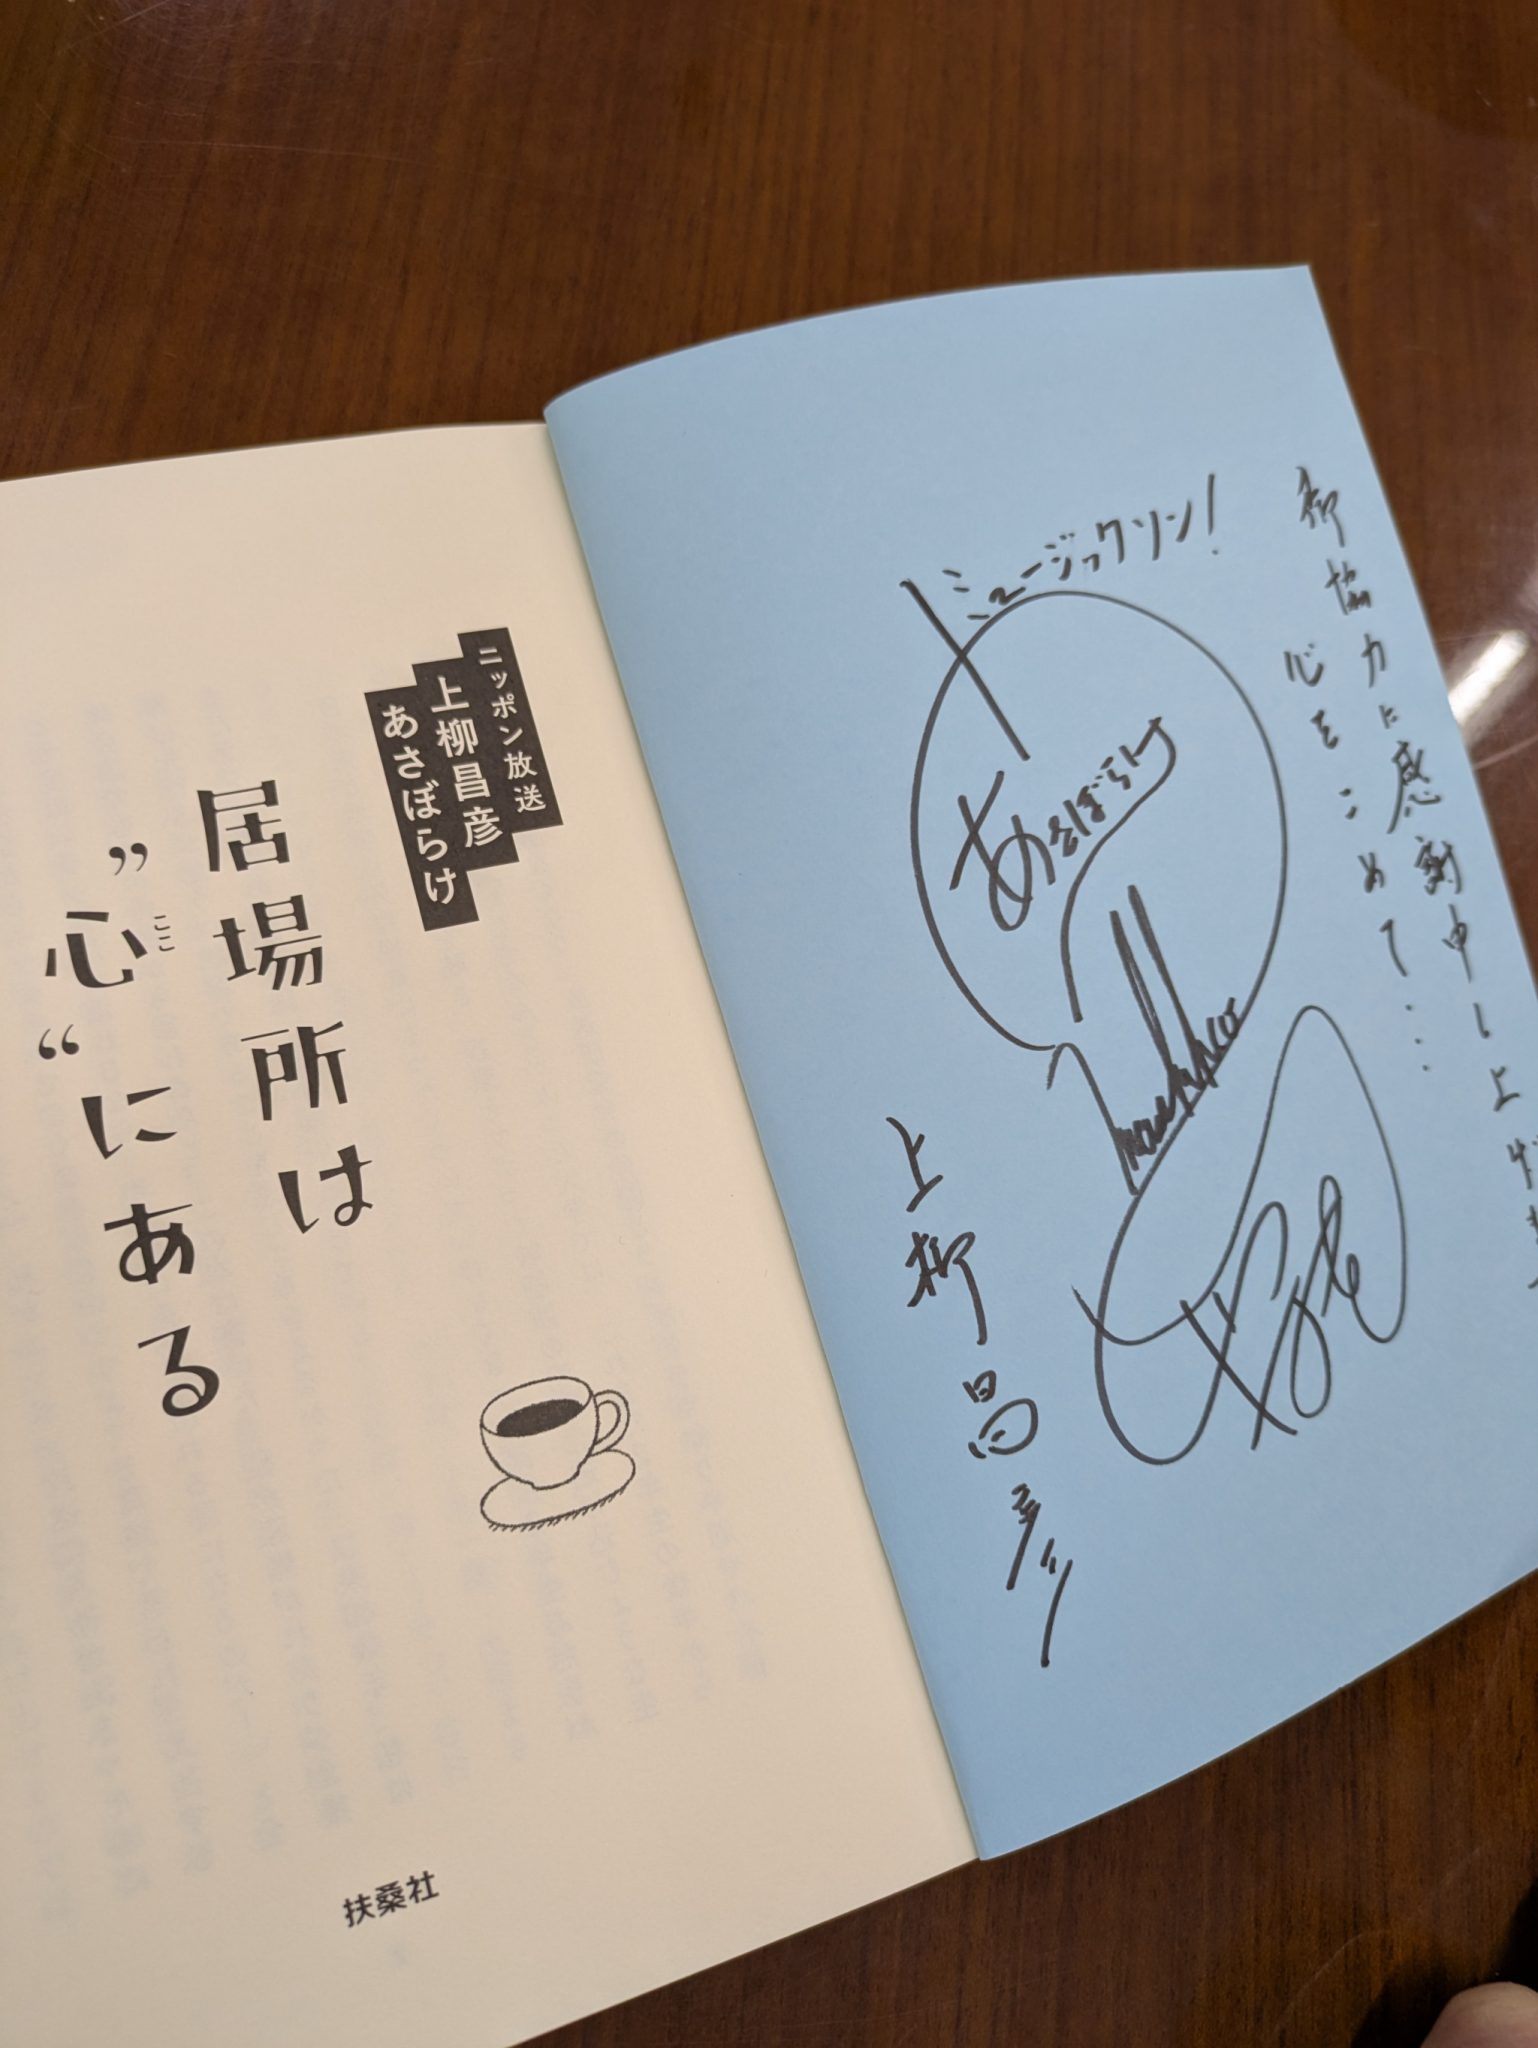 御協力に感謝申し上げます
心をこめて…
ミュージックソン!
あさぼらけ
上柳昌彦
ニッポン放送
上柳昌彦
あさぼらけ
居場所は
”心“にある
ここ
扶桑社